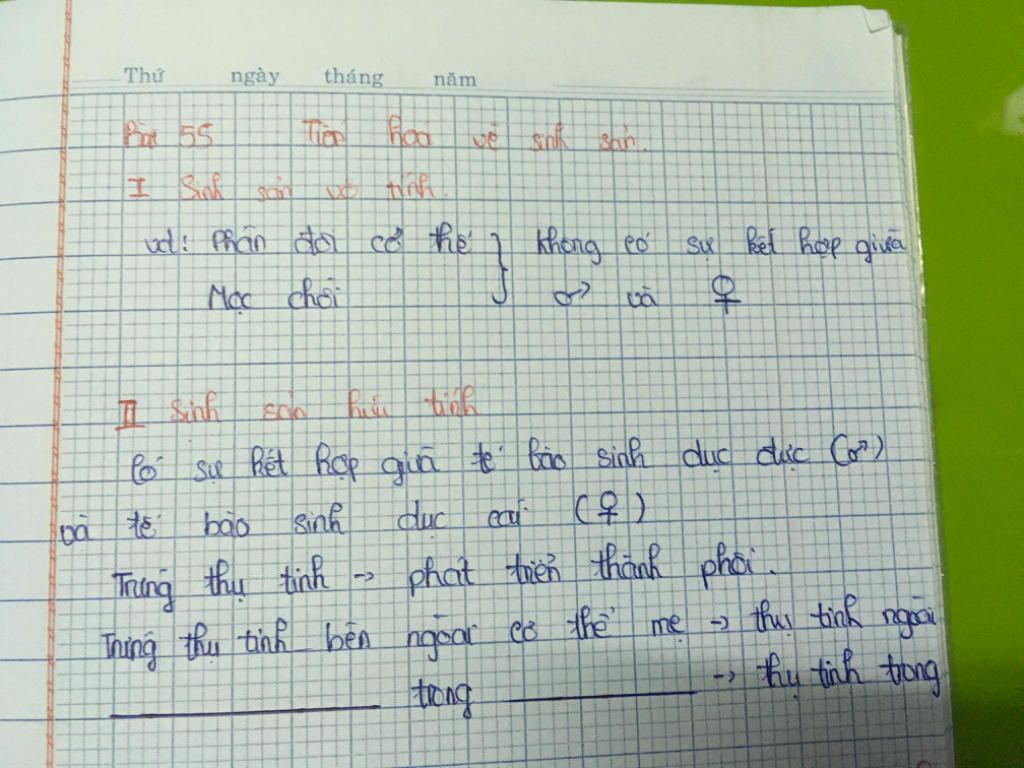 Thứ ngày tháng năm
Bài 55 Tiến hoá về sinh sản.
I Sinh sản vô tính.
vd: Phân đôi cơ thể } không có sự kết hợp giữa
Mọc chồi } ♂ và ♀
II Sinh sản hữu tính
Có sự kết hợp giữa tế bào sinh dục đực (♂)
và tế bào sinh dục cái (♀)
Trứng thụ tinh → phát triển thành phôi.
Trứng thụ tinh bên ngoài cơ thể mẹ → thụ tinh ngoài
___ trong ___ → thụ tinh trong